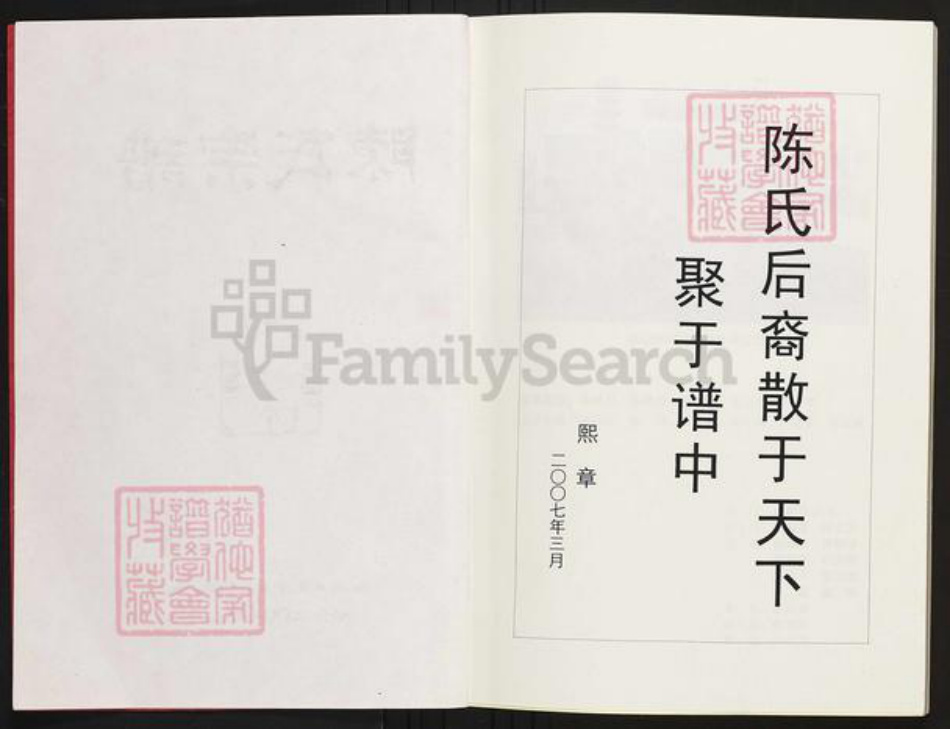 陈氏后裔散于天下
聚于谱中
熙章
二〇〇七年三月
猶他家
譜學會
收藏
FamilySearch
猶他家
譜學會
收藏